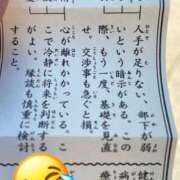 健
病
療
人手が足りない、部下が弱
いという暗示がある。この
際、もう一度、基礎を見直
せ。交渉事は急ぐと
心が離れかかっている。こ
こで冷静に将来を判断する
がよい。縁談も慎重に検討
すること。